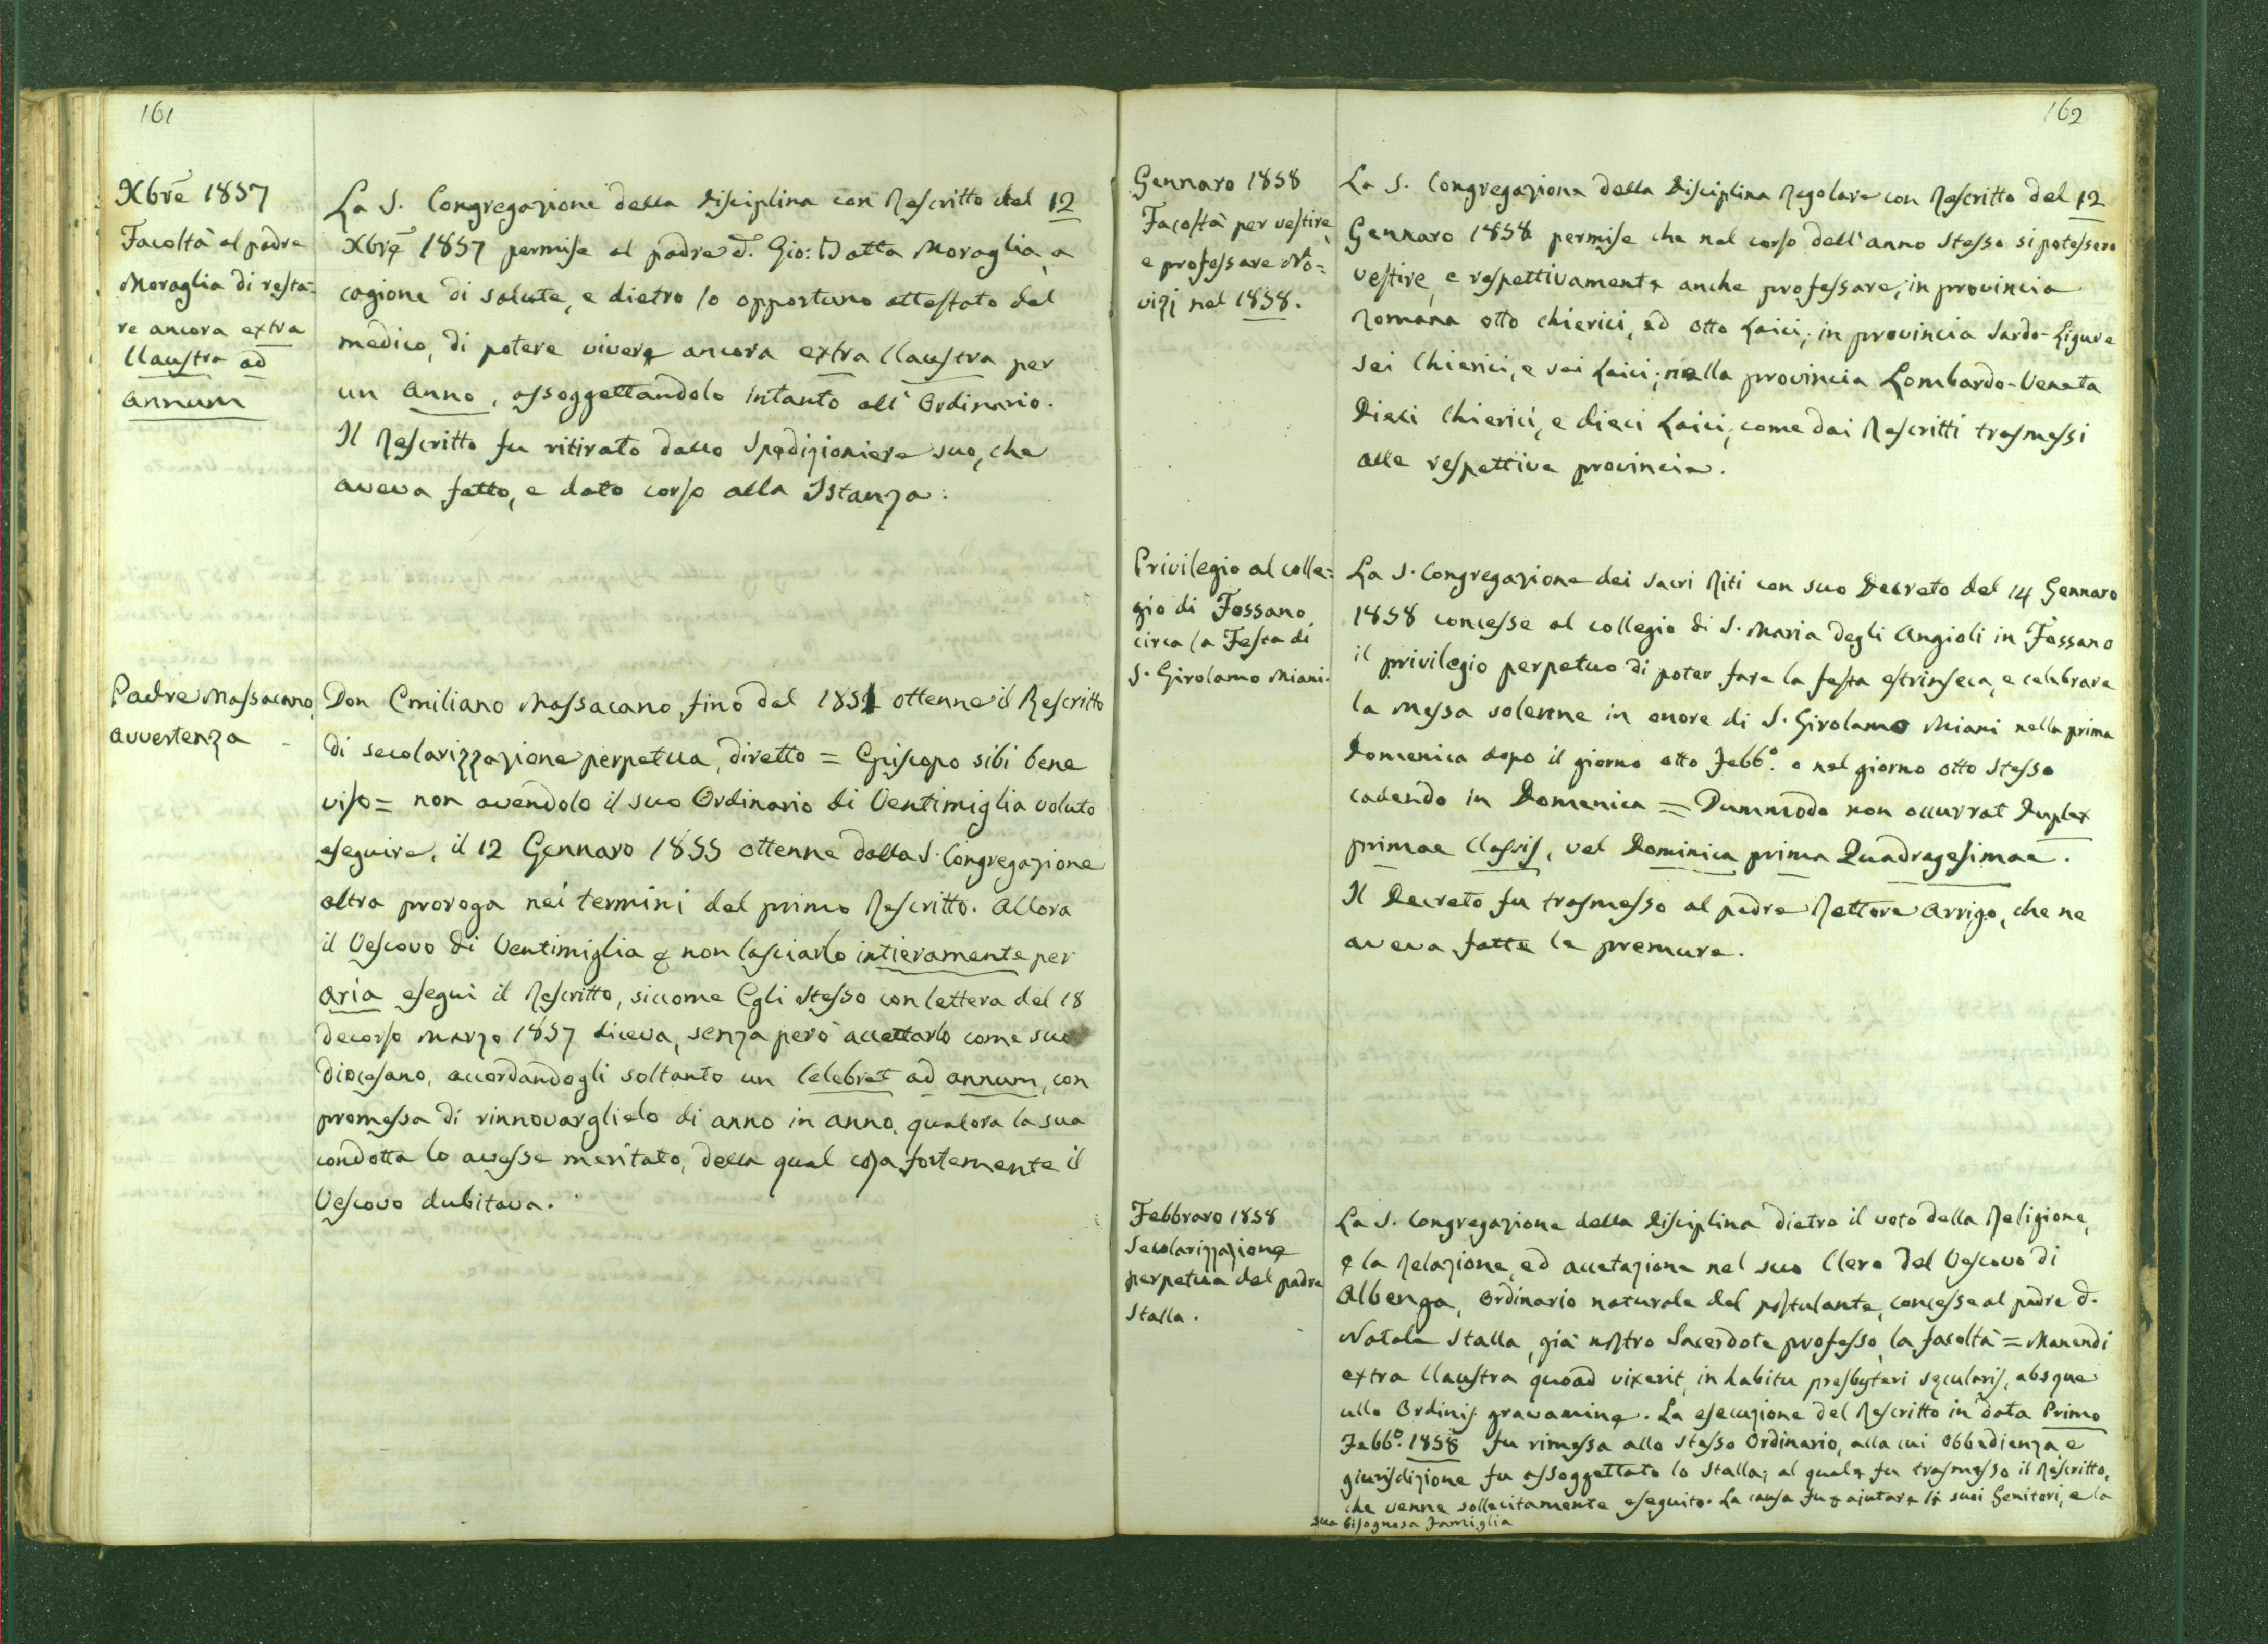 161
Xbre 1857
Facoltà al padre
Moraglia di resta=
re ancora extra
Claustra ad
annum
La S. Congregazione della Disciplina con Rescritto del 12
Xbre 1857 permise al padre d. Gio: Batta Moraglia, a
cagione di salute, e dietro lo opportuno attestato del
medico, di potere vivere ancora extra Claustra per
un anno, assoggettandolo intanto all' Ordinario.
Il Rescritto fu ritirato dallo Spedizioniere suo, che
aveva fatto, e dato corso alla Istanza.
Padre Massacano,
avvertenza
Don Emiliano Massacano fino dal 1851 ottenne il Rescritto
di secolarizzazione perpetua, diretto = Episcopo sibi bene
viso = non avendolo il suo Ordinario di Ventimiglia voluto
eseguire, il 12 Gennaro 1855 ottenne dalla S. Congregazione
altra proroga nei termini del primo Rescritto. Allora
il Vescovo di Ventimiglia p non lasciarlo intieramente per
aria eseguì il Rescritto, siccome Egli stesso con lettera del 18
decorso Marzo 1857 diceva, senza però accettarlo come suo
diocesano, accordandogli soltanto un Celebret ad annum, con
promessa di rinnovarglielo di anno in anno, qualora la sua
condotta lo avesse meritato, della qual cosa fortemente il
Vescovo dubitava.
162
Gennaro 1858
Facoltà per vestire,
e professare No=
vizj nel 1858.
La S. Congregazione della Disciplina Regolare con Rescritto del 12
Gennaro 1858 permise che nel corso dell'anno stesso si potessero
vestire, e respettivamente anche professare, in provincia
Romana otto Chierici, ed otto Laici; in provincia Sardo-Ligure
sei Chierici, e sei Laici; nella provincia Lombardo-Veneta
Dieci Chierici, e dieci Laici, come dai Rescritti trasmessi
alle respettive provincie.
Privilegio al colle=
gio di Fossano
circa la Festa di
S. Girolamo Miani.
La S. Congregazione dei Sacri Riti con suo Decreto del 14 Gennaro
1858 concesse al collegio di S. Maria degli Angioli in Fossano
il privilegio perpetuo di poter fare la festa estrinseca, e celebrare
la Messa solenne in onore di S. Girolamo Miani nella prima
Domenica dopo il giorno otto Febb.o o nel giorno otto stesso
cadendo in Domenica = Dummodo non occurrat Duplex
primae Classis, vel Dominica prima Quadragesimae.
Il Decreto fu trasmesso al padre Rettore Arrigo, che ne
aveva fatte le premure.
Febbraro 1858
Secolarizzazione
perpetua del padre
Stalla.
La S. Congregazione della Disciplina dietro il voto della Religione,
e la Relazione, ed accetazione nel suo Clero del Vescovo di
Albenga, Ordinario naturale del postulante, concesse al padre d.
Natale Stalla, già nostro Sacerdote professo, la facoltà = Manendi
extra Claustra quoad vixerit, in habitu presbyteri secularis, absque
ullo Ordinis gravamine. La esecuzione del Rescritto in data Primo
Febb.o 1858 fu rimessa allo stesso Ordinario, alla cui obbedienza, e
giurisdizione fu assoggettato lo Stalla; al quale fu trasmesso il Rescritto,
che venne sollecitamente eseguito. La causa fu p ajutare li suoi Genitori, e la
sua bisognosa Famiglia